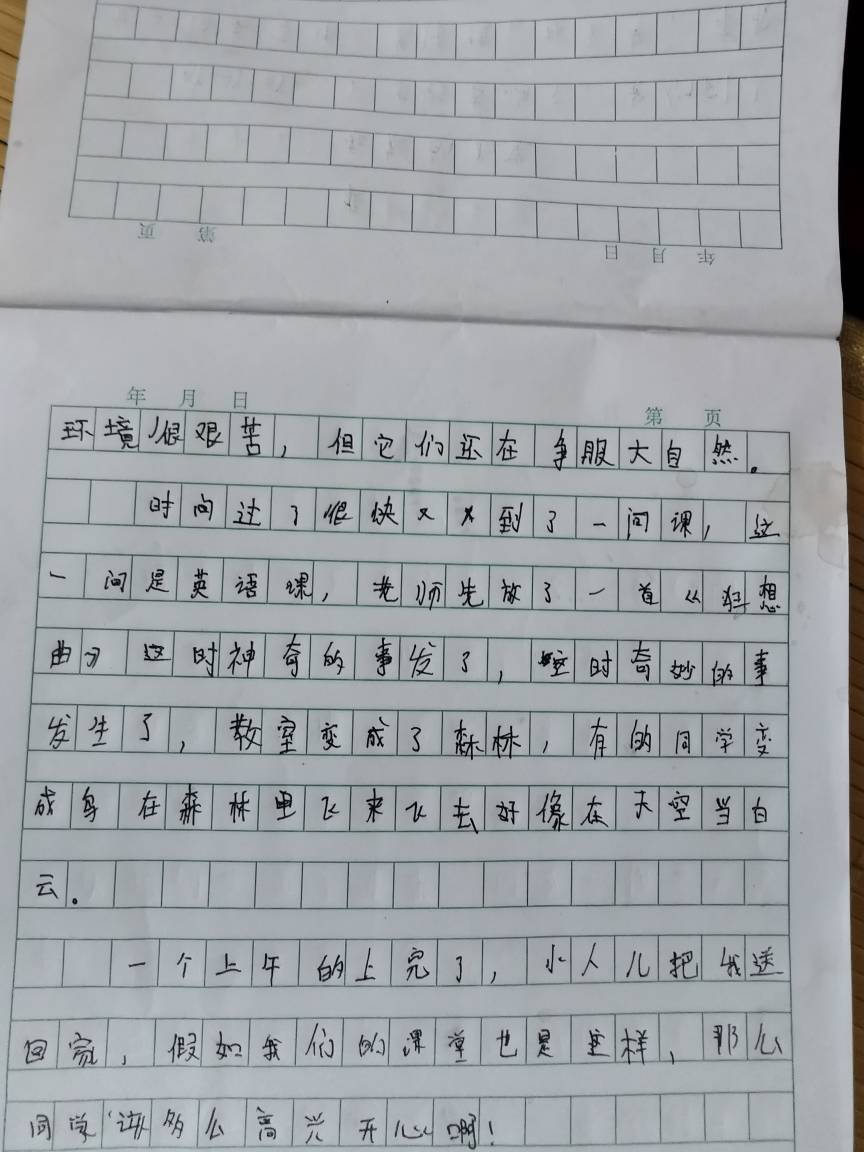 第 页
年 月 日
年 月 日
第 页
环境很艰苦，但它们还在争服大自然。
时间过了很快又又到了一间课，这
一间是英语课，老师先放了一首《狂想
曲》这时神奇的事发了，这时奇妙的事
发生了，教室变成了森林，有的同学变
成鸟在森林里飞来飞去好像在天空当白
云。
一个上午的上完了，小人儿把我送
回家，假如我们的课堂也是这样，那么
同学该多么高兴开心啊！